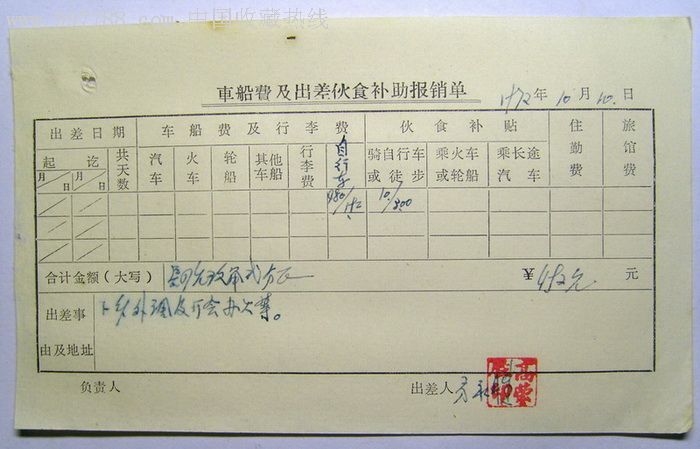 中国收藏热线
車船費及出差伙食补助报销单
1972年10月10日
出差日期 车船费及行李费 伙食补贴 住勤费 旅馆费
起 讫 共天数 汽车 火车 轮船 其他车船 行李费 自行车 骑自行车或徒步 乘火车或轮船 乘长途汽车
月 日 月 日
合计金额(大写) ¥ 元
出差事由及地址 下乡外调及开会办公等。
负责人 出差人